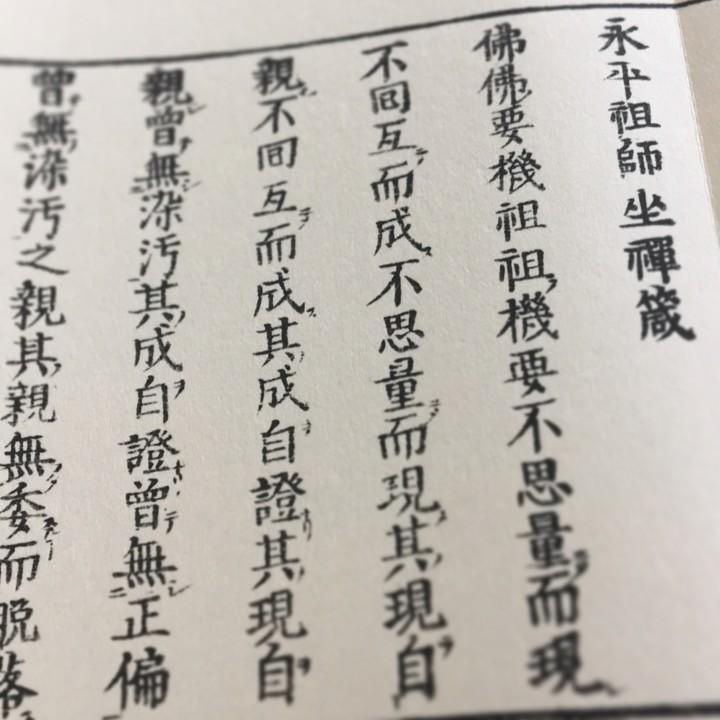 永平祖師坐禪箴
佛佛要機祖祖機要不思量而現
不回互而成不思量而現其現自
親不回互而成其成自證其現自
親曾無染汚其成自證曾無正偏
曾無染汚之親其親無委而脱落